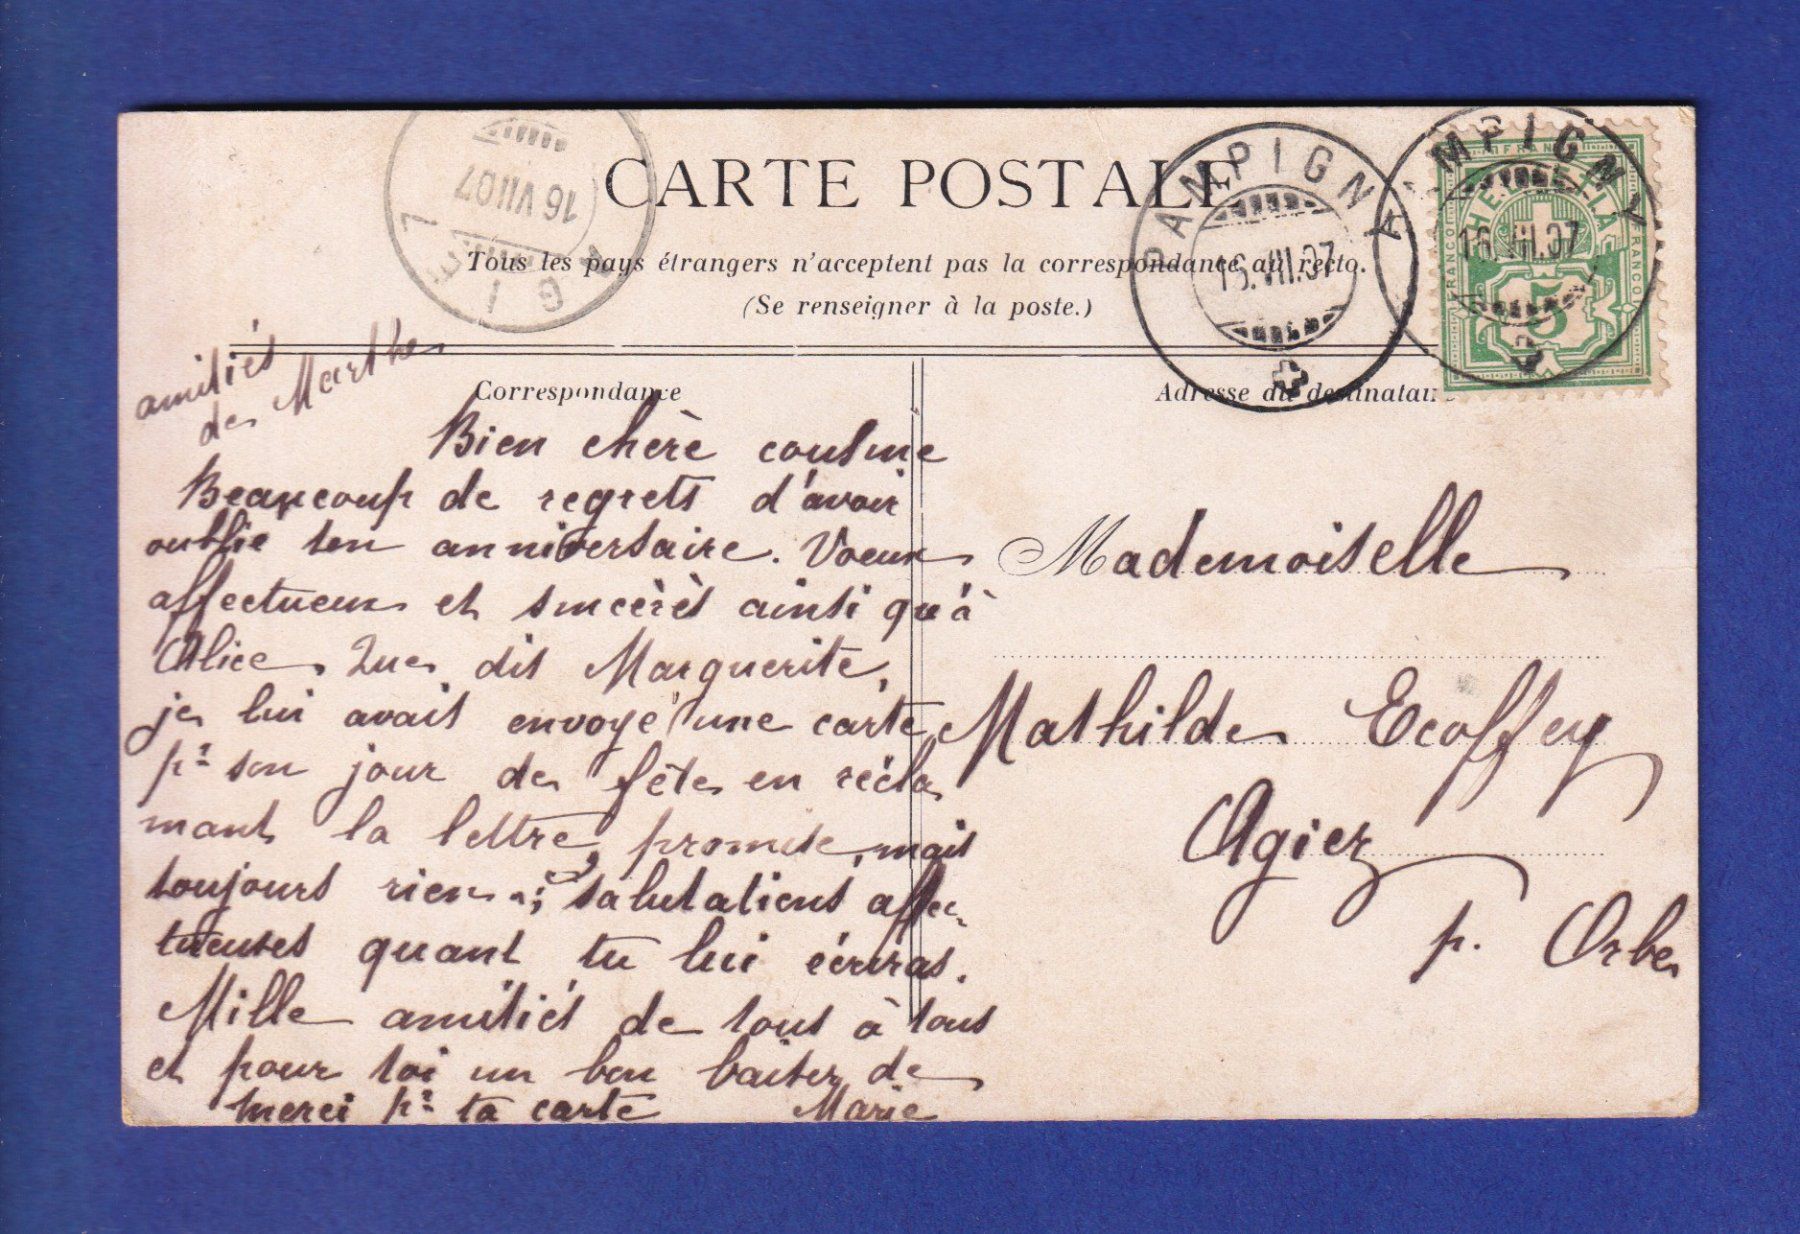 CARTE POSTALE
Tous les pays étrangers n'acceptent pas la correspondance au recto.
(Se renseigner à la poste.)
16 VII 07
AGIEZ
DAMPIGNY
16.VII.07
MPIGNY
16.VII.07
FRANCO
HELVETIA
FRANCO
5
amitiés
de Marthe
Correspondance
Adresse du destinatai
Bien chère cousine
Beaucoup de regrets d'avoir
oublié ton anniversaire. Voeux
affectueux et sincères ainsi qu'à
Alice. Que dit Marguerite,
je lui avais envoyé une carte
pr son jour de fête en récla
mant la lettre promise, mais
toujours rien ; salutations affec-
tueuses quant tu lui écriras.
Mille amitiés de tous à tous
et pour toi un bon baiser de
merci pr ta carte Marie
Mademoiselle
Mathilde Ecoffey
Agiez
p. Orbe